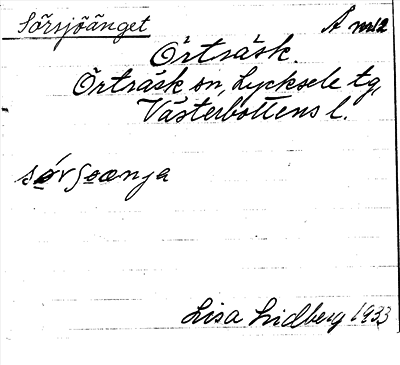 Sörsjöänget Å nr 12
Örträsk.
Örträsk sn, Lycksele tg,
Västerbottens l.
sørʃøænja
Lisa Lidberg 1933